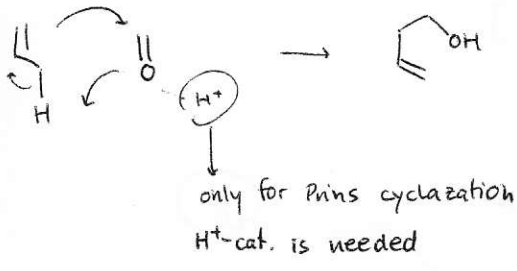 OH
O
H
H+
only for Prins cyclazation
H+-cat. is needed